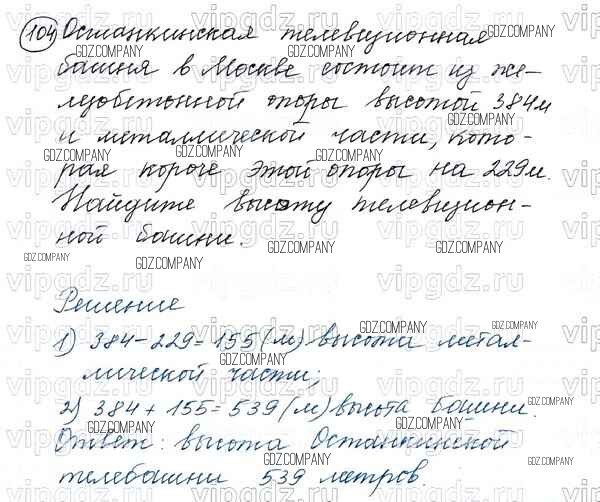 104 Останкинская телевизионная
башня в Москве состоит из же-
лезобетонной опоры высотой 384м
и металлической части, кото-
рая короче этой опоры на 229м.
Найдите высоту телевизион-
ной башни.
Решение
1) 384-229=155(м) высота метал-
лической части;
2) 384+155=539(м) высота башни.
Ответ: высота Останкинской
телебашни 539 метров.